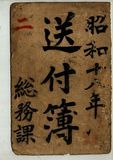 昭和十六年
送付簿
二
総務課